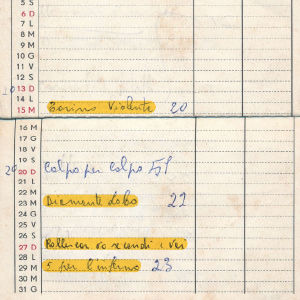 5 S
6 D
7 L
8 M
9 M
10 G
11 V
12 S
13 D
14 L
15 M Torino Violenta 20
16 M
17 G
18 V
19 S
20 D Colpo per colpo
21 L
22 M
23 M Diamante Lobo 22
24 G
25 V
26 S
27 D Rollercar
28 L
29 M 5 per l'inferno 23
30 M
31 G